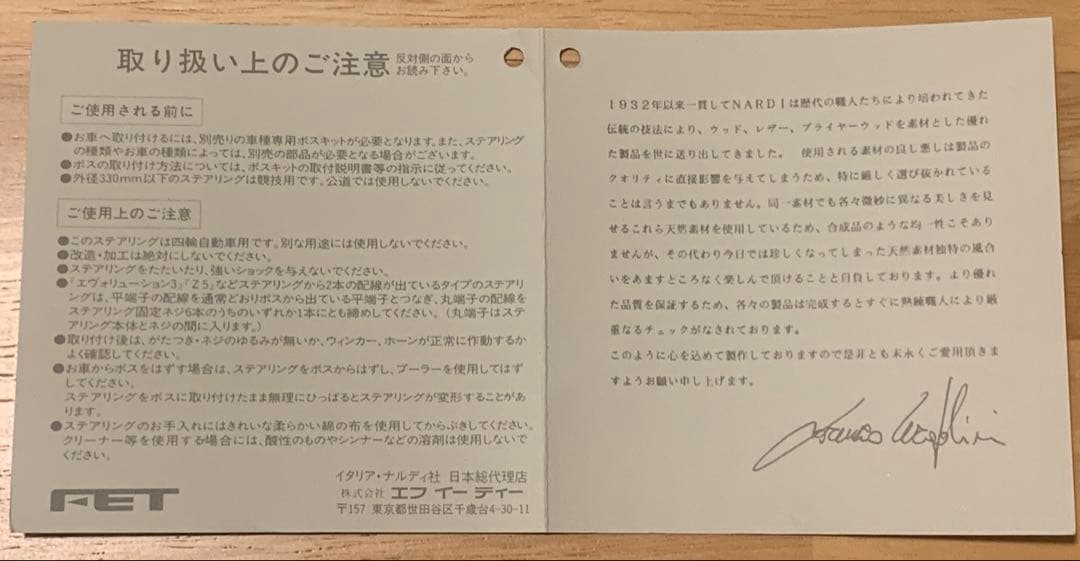 取り扱い上のご注意 反対側の面から
お読み下さい。
ご使用される前に
●お車へ取り付けるには、別売りの車種専用ボスキットが必要となります。また、ステアリング
の種類やお車の種類によっては、別売の部品が必要となる場合がございます。
●ボスの取り付け方法については、ボスキットの取付説明書等の指示に従ってください。
●外径330mm以下のステアリングは競技用です。公道では使用しないでください。
ご使用上のご注意
●このステアリングは四輪自動車用です。別な用途には使用しないでください。
●改造・加工は絶対にしないでください。
●ステアリングをたたいたり、強いショックを与えないでください。
●『エヴォリューション3』『Z5』などステアリングから2本の配線が出ているタイプのステアリ
ングは、平端子の配線を通常どおりボスから出ている平端子とつなぎ、丸端子の配線を
ステアリング固定ネジ6本のうちのいずれか1本にとも締めしてください。(丸端子はステ
アリング本体とネジの間に入ります。)
●取り付け後は、がたつき・ネジのゆるみが無いか、ウィンカー、ホーンが正常に作動するか
よく確認してください。
●お車からボスをはずす場合は、ステアリングをボスからはずし、プーラーを使用してはず
してください。
ステアリングをボスに取り付けたまま無理にひっぱるとステアリングが変形することがあ
ります。
●ステアリングのお手入れにはきれいな柔らかい綿の布を使用してからぶきしてください。
クリーナー等を使用する場合には、酸性のものやシンナーなどの溶剤は使用しないで
ください。
FET
イタリア・ナルディ社 日本総代理店
株式会社 エフ イー ティー
〒157 東京都世田谷区千歳台4-30-11
1932年以来一貫してNARDIは歴代の職人たちにより培われてきた
伝統の技法により、ウッド、レザー、ブライヤーウッドを素材とした優れ
た製品を世に送り出してきました。 使用される素材の良し悪しは製品の
クオリティに直接影響を与えてしまうため、特に厳しく選び抜かれている
ことは言うまでもありません。同一素材でも各々微妙に異なる美しさを見
せるこれら天然素材を使用しているため、合成品のような均一性こそあり
ませんが、その代わり今日では珍しくなってしまった天然素材独特の風合
いをあますところなく楽しんで頂けることと自負しております。より優れ
た品質を保証するため、各々の製品は完成するとすぐに熟練職人により厳
重なるチェックがなされております。
このように心を込めて製作しておりますので是非とも末永くご愛用頂きま
すようお願い申し上げます。